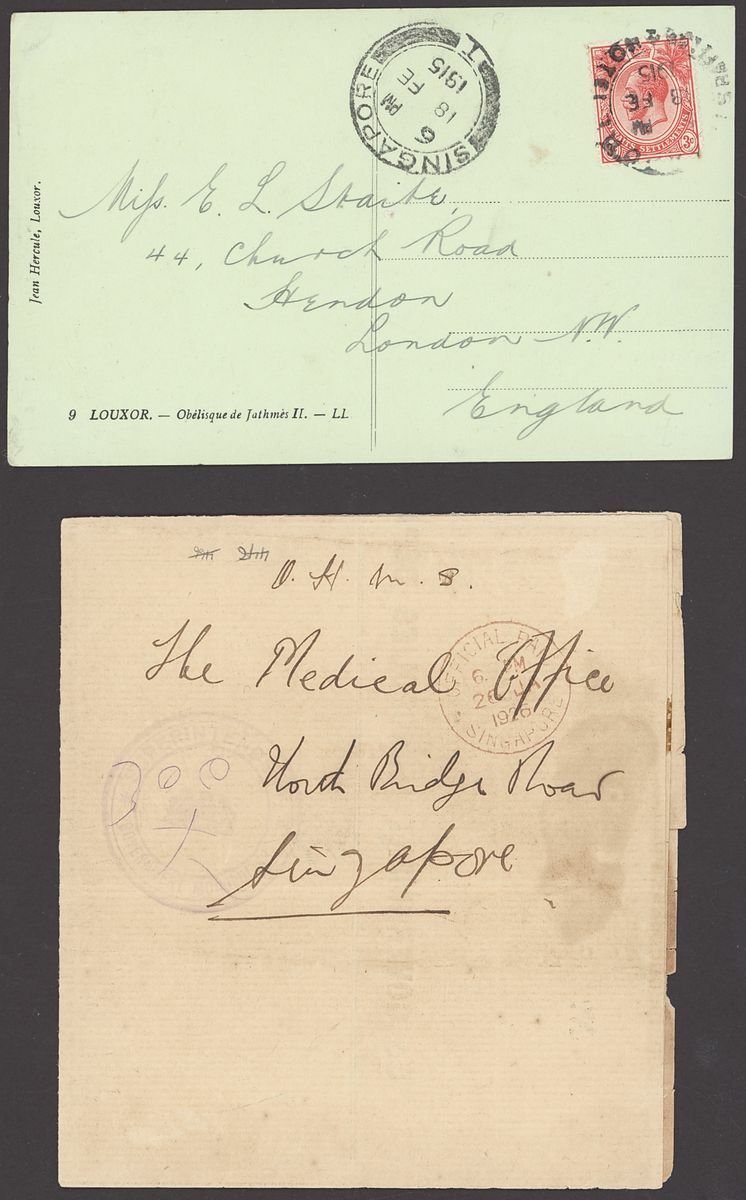 SINGAPORE
1
6 PM
18 FE
1915
PM
FE
15
STRAITS SETTLEMENTS
3c
Jean Hercule, Louxor.
Miss. E. L. Staite,
44, Church Road
Hendon
London N.W.
England
9 LOUXOR. — Obélisque de Jathmès II. — LL
O. H. M. S.
The Medical Office
North Bridge Road
Singapore
OFFICIAL PAID
6. PM
26
1926
SINGAPORE